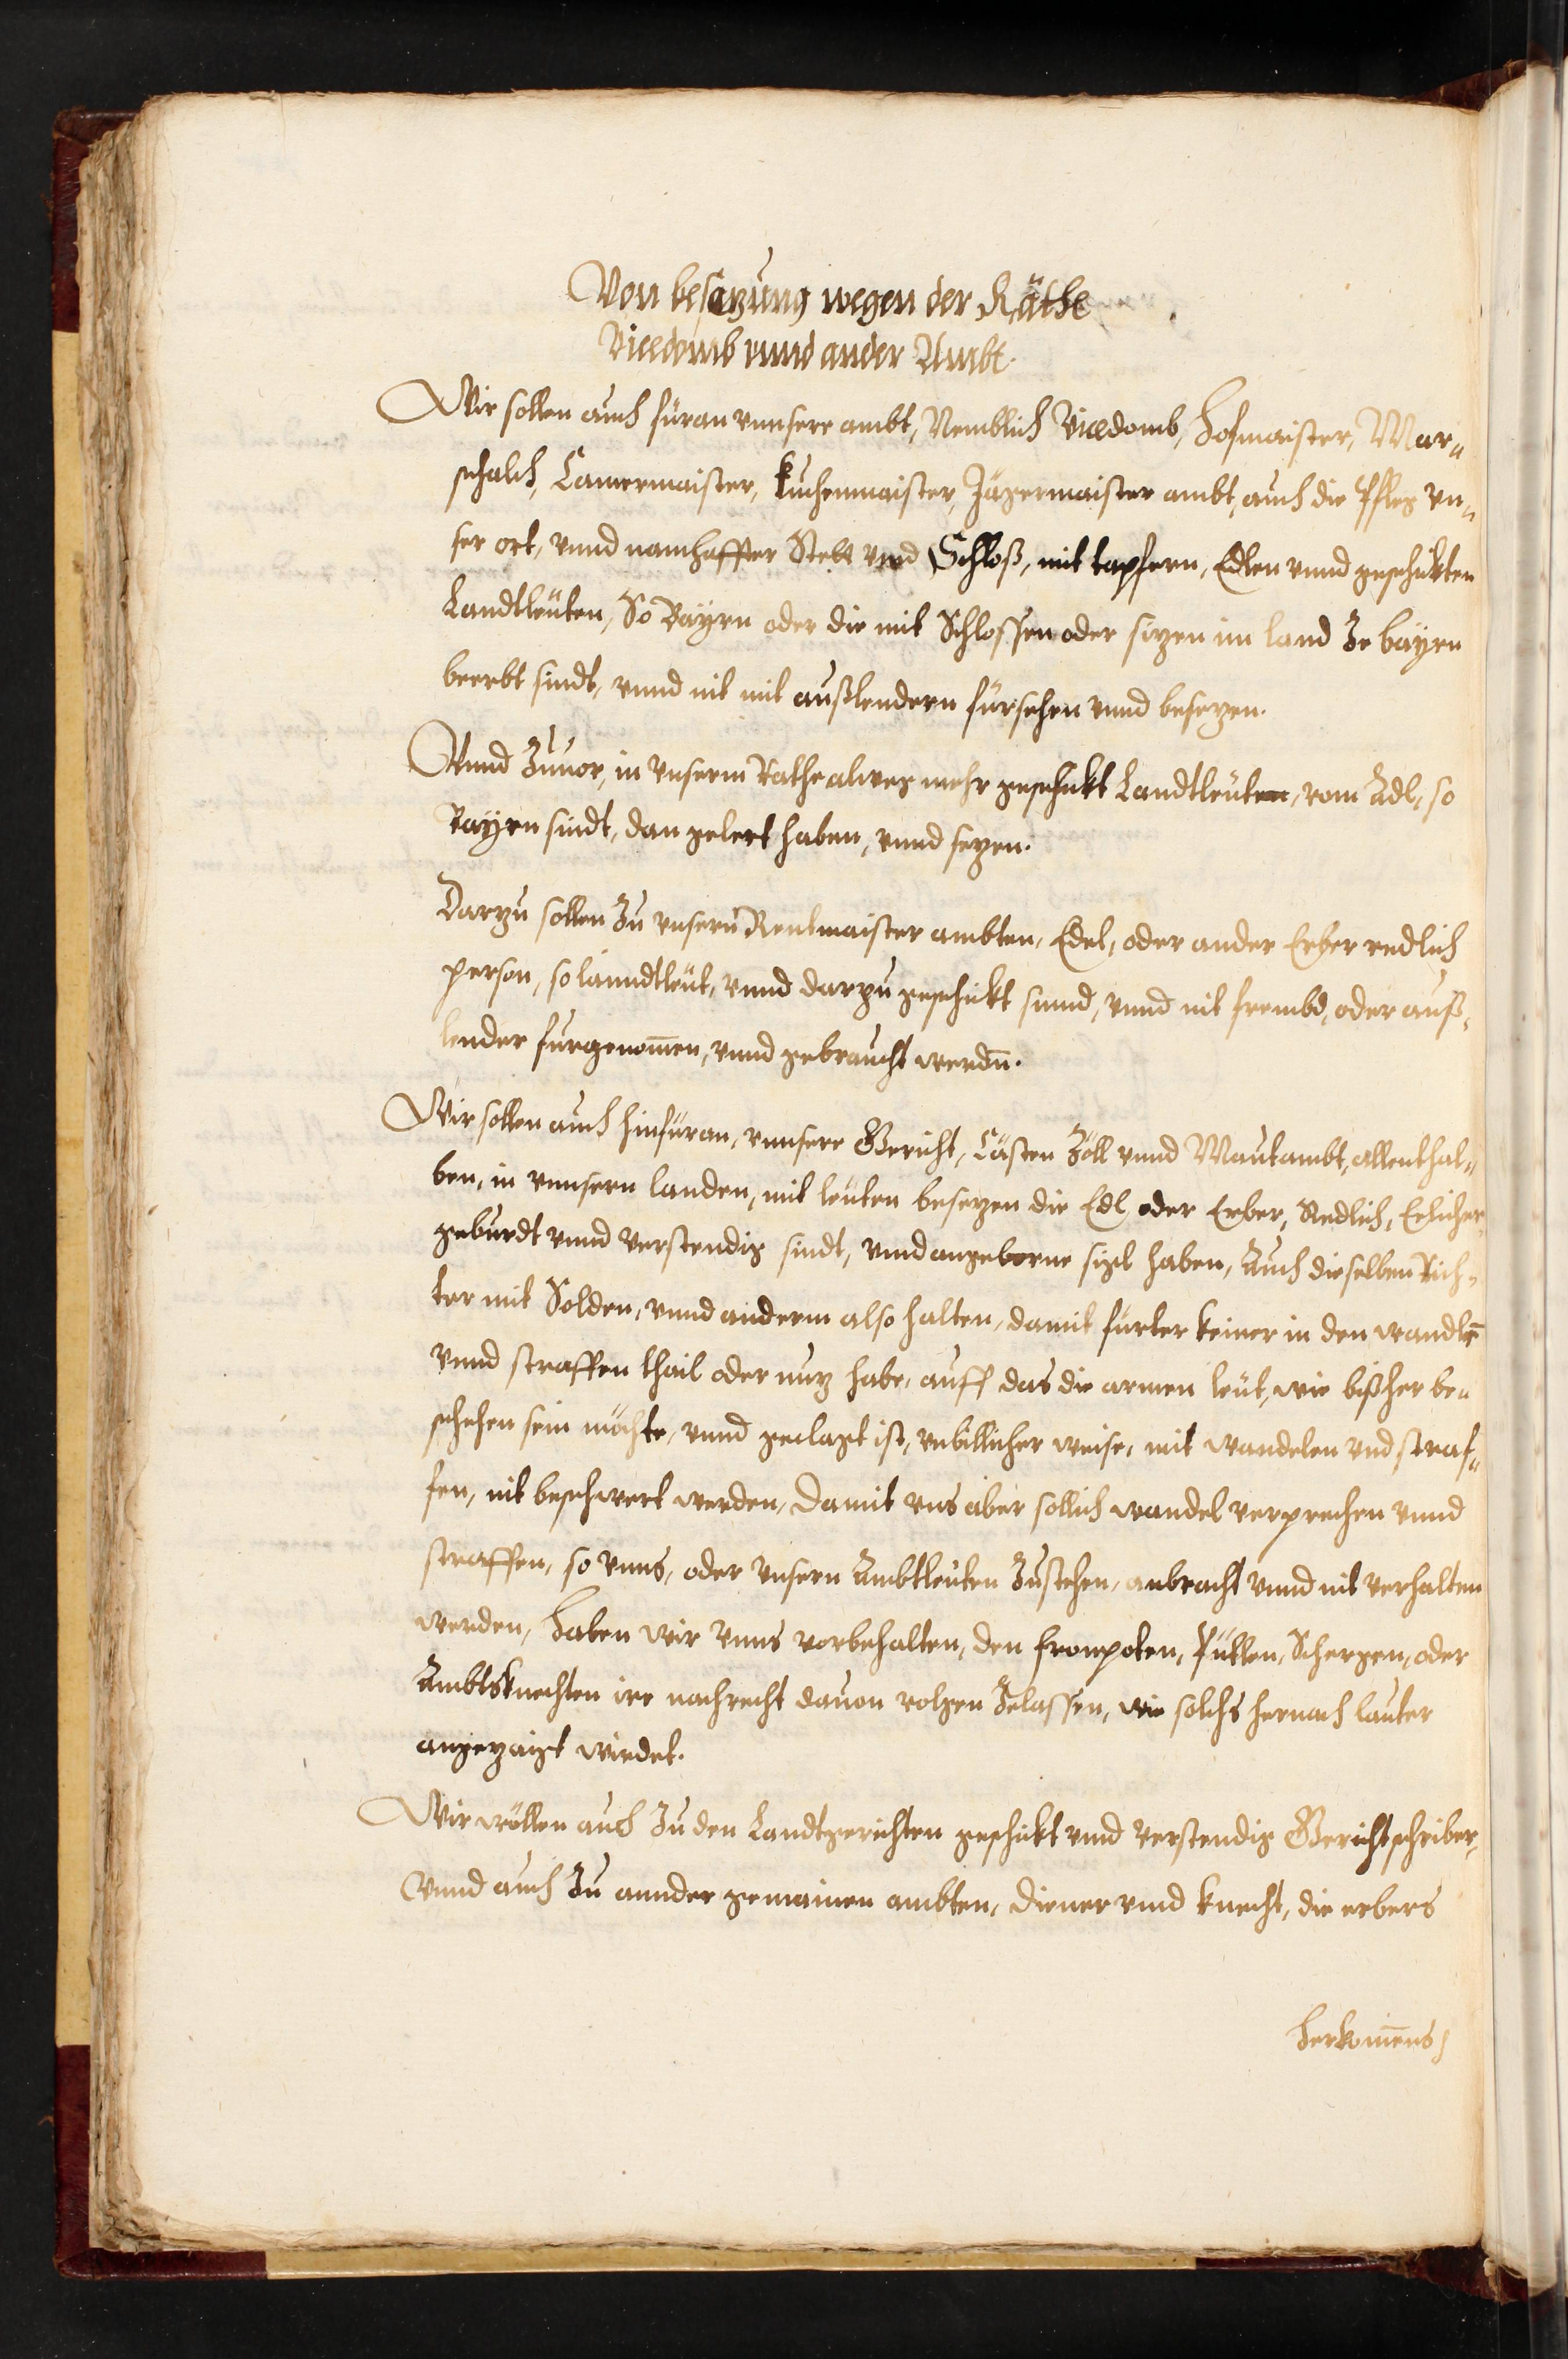 Von besazung wegen der Räthe
Vicedomb vnnd ander Ambt.
Wir sollen auch füran vnnsere ambt, Nemblich Vicedomb, Hofmaister, Mar„
schalch, Camermaister, kuchenmaister, Jägermaister ambt, auch die Pfleg vn„
ser ort, vnnd namhaffter Stett vnd Schloß, mit tapfern, Edlen vnnd geschikten
Landtleüten, So Bayrn oder die mit Schlossen oder sizen im land Ze bayrn
beerbt sindt, vnnd nit mit außlendern fürsehen vnnd besezen.
Vnnd Zuuor, in vnserm Rathe alweg mehr geschikt Landtleüten, vom Adl, so
Bayrn sindt, dan gelert haben, vnnd sezen.
Darzu sollen Zu vnsern Rentmaister ambten, Edel, oder ander Erber redlich
person, so lanndtleüt, vnnd darzu geschikt sinnd, vnnd nit frembd, oder auß„
lender furgenom̄en, vnnd gebraucht werdn̄.
Wir sollen auch hinfüran, vnnsere Gericht, Cästen Zöll vnnd Mautambt, allenthal„
ben, in vnnsern landen, mit leüten besezen die Edl oder Erber, Redlich, Erlicher
geburdt vnnd verstendig sindt, vnnd angeborne sigl haben, Auch dieselben Rich„
ter mit Solden, vnnd anderm also halten, damit fürter keiner in den wandlē
vnnd straffen thail oder nuz habe, auff das die armen leüt, wie bißher be„
schehen sein möchte, vnnd geclagt ist, vnbillicher weise, mit wandelen vnd straf„
fen, nit beschwert werden, Damit vns aber sollich wandel verprechen vnnd
straffen, so vnns, oder vnsern Ambtleüten Zustehen, anbracht vnnd nit verhalten
werden, Haben wir vnns vorbehalten, den fronpoten, Püttln, Schergen, oder
Ambtsknechten ire nachrecht dauon volgen Zelassen, wie solchs hernach lauter
angezaigt wirdet.
Wir wöllen auch Zu den Landtgerichten geschikt vnnd verstendig Gerichtschreiber,
vnnd auch Zu annder gemainen ambten, Diener vnnd knecht, die erbers
Herkom̄ens